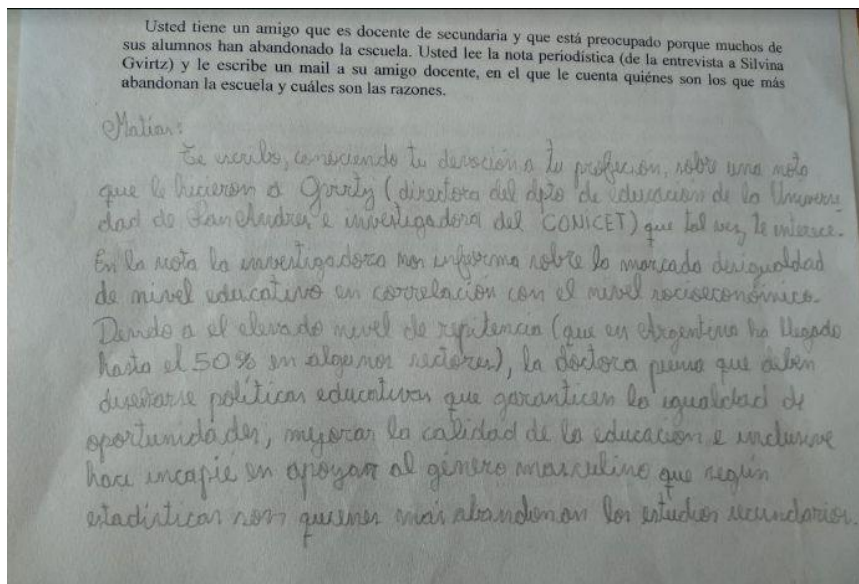 Usted tiene un amigo que es docente de secundaria y que está preocupado porque muchos de
sus alumnos han abandonado la escuela. Usted lee la nota periodística (de la entrevista a Silvina
Gvirtz) y le escribe un mail a su amigo docente, en el que le cuenta quiénes son los que más
abandonan la escuela y cuáles son las razones.
Matías:
Te escribo, conociendo tu devoción a tu profeción, sobre una nota
que le hicieron a Gvirty (directora del dpto de educacion de la Universi
dad de San Andres e investigadora del CONICET) que tal vez, te interese.
En la nota la investigadora nos informa sobre la marcada desigualdad
de nivel educativo en correlación con el nivel socioeconómico.
Devido a el elevado nivel de repitencia (que en Argentina ha llegado
hasta el 50% en algunos sectores), la doctora piensa que deben
diseñarse políticas educativas que garanticen la igualdad de
oportunidades, mejorar la calidad de la educación e inclusive
hace incapie en apoyar al género masculino que según
estadísticas son quienes más abandonan los estudios secundarios.